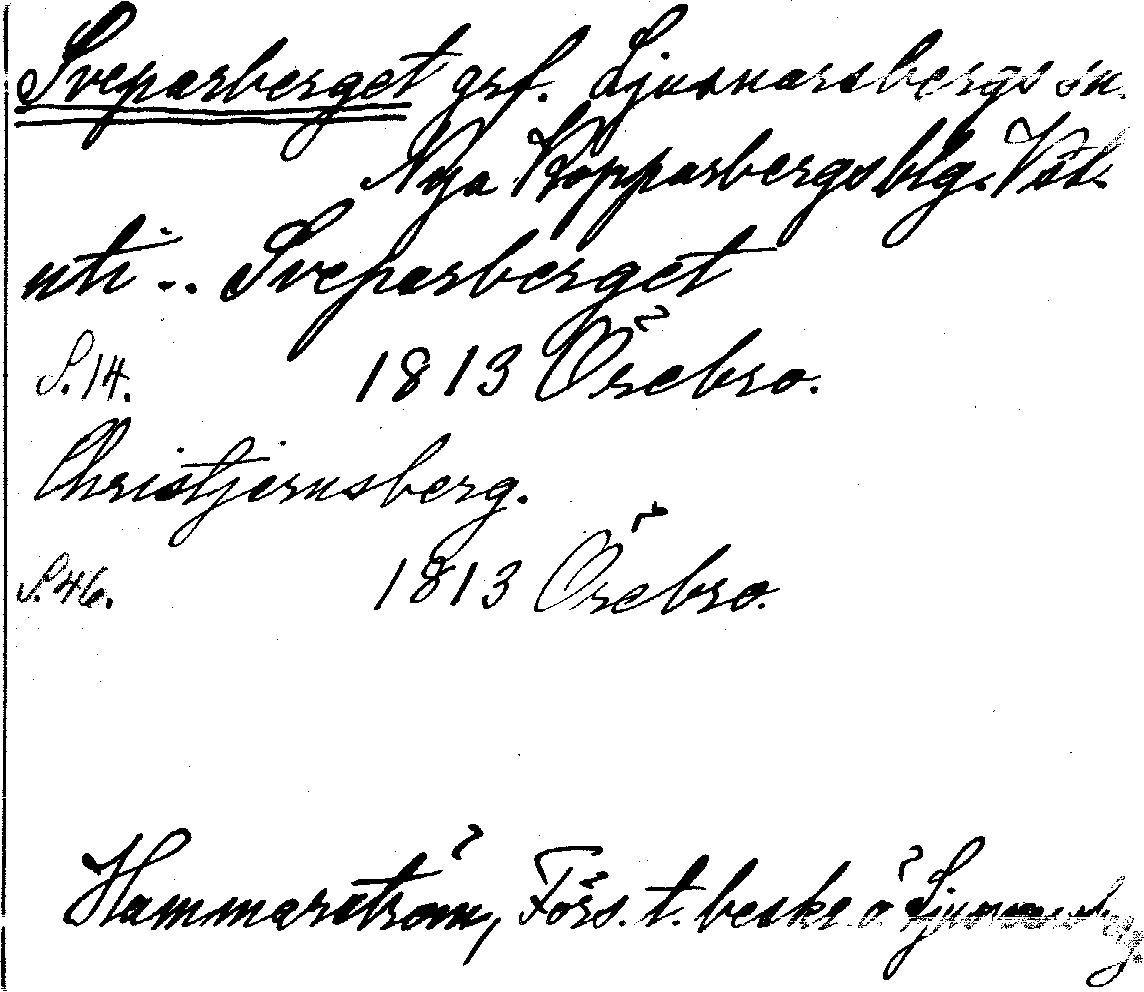 Sveparberget grf. Ljusnarsbergs sn.
Nya Kopparbergs blg. Vstl.
uti .. Sveparberget
S. 14. 1813 Örebro.
Christjernsberg.
S. 46. 1813 Örebro.
Hammarström, Förs. t. beskr ö Ljusnarsberg.